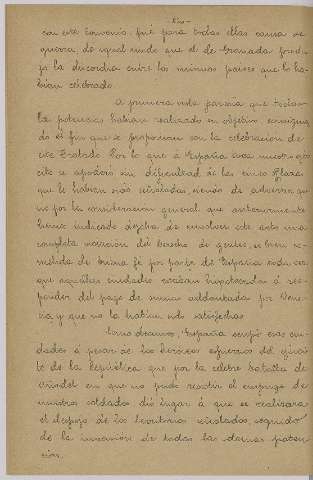 con este convenio, fué para todas ellas causa de
guerra, de igual modo que el de Granada produ
jo la discordia entre los mismos países que lo ha-
bían celebrado.
A primera vista parecía que todas
las potencias habían realizado su objetivo
do el fin que se proponían con la celebración de
este Tratado. Por lo que á España toca nuestro ejér
cito se apoderó sin dificultad de las cinco plazas
que le habían sido señaladas siendo de advertir que
no por la consideración general que anteriormente
hemos indicado dejaba de envolver este acto una
completa violación del derecho de gentes, si bien
de buena fe por parte de España toda vez
que aquellas ciudades estaban hipotecadas á res-
ponder del pago de sumas adelantadas por Vene-
cia y que no la habían sido satisfechas.
Como decimos, España ocupó esas ciu-
dades á pesar de los heroicos esfuerzos del ejérci-
to de la República que por la célebre batalla de
en que no pudo resistir el empuje de
nuestros soldados dió lugar á que se realizara
el despojo de los territorios señalados seguido
de la invasión de todas las demás poten-
cias.